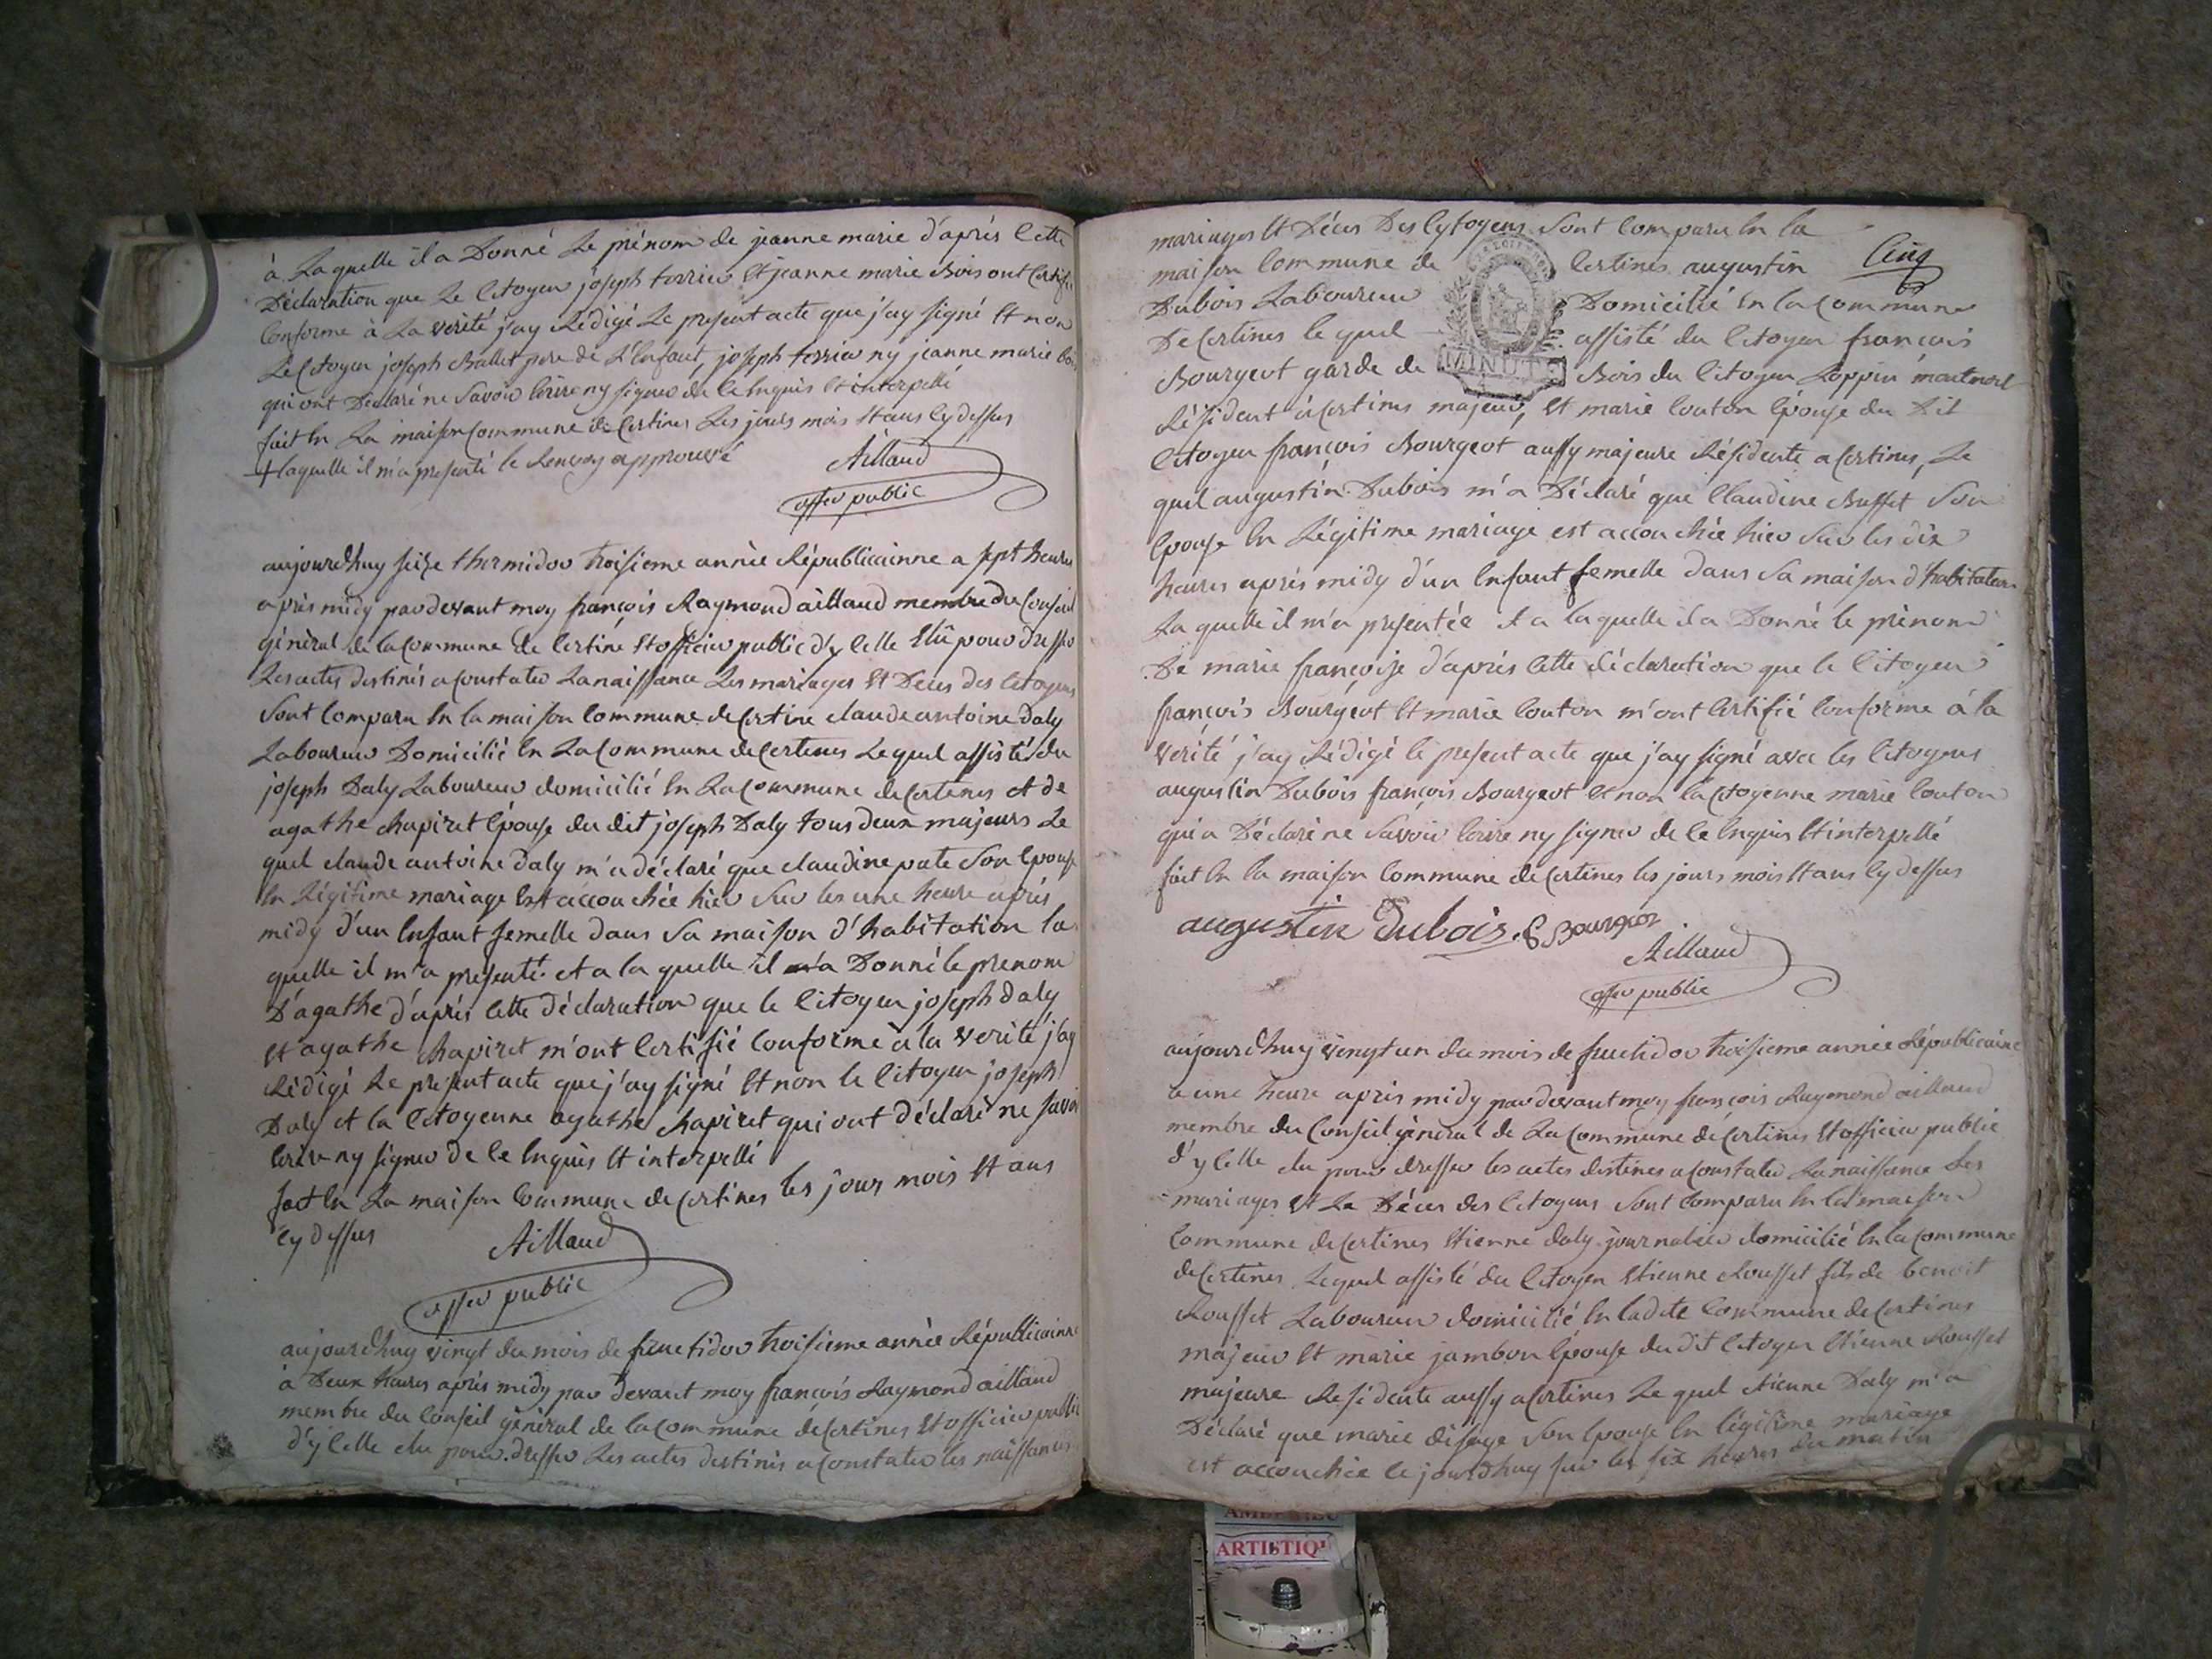 à Laquelle il a Donné Le prénom de jeanne marie d'après Cette
Déclaration que Le Citoyen joseph terrier Et jeanne marie Bois ont Certifié
Conforme à La verité j'ay Rédigé Le present acte que j'ay signé Et non
Le Citoyen joseph Ballet pere de L'Enfant, joseph terrier ny jeanne marie Bois
qui ont Déclaré ne Savoir Ecrire ny signer de ce Enquis Et interpellé
fait En La maison Commune de Certines Les jours mois Et ans Cy dessus
+ laquelle il m'a presenté le Renvoy approuvé
Aillaud
offer public
aujourdhuy seize thermidor troisieme année Républicainne a sept heures
après midy par devant moy françois Raymond aillaud membre du Conseil
général de la Commune de Certine Et officier public d'yCelle Elû pour dresser
Les actes destinés a Constater La naissance Les mariages Et Deces des Citoyens
Sont Comparu En la maison Commune de Certine claude antoine daly
Laboureur Domicilié En La Commune de Certines Lequel assisté du
joseph Daly Laboureur domicilié En La Commune de Certines et de
agathe chapiret Epouse du dit joseph Daly tous deux majeurs Le
quel claude antoine daly m'a déclaré que claudine pate Son Epouse
En Légitime mariage Est accouchée hier Sur les une heure après
midy d'un Enfant femelle dans Sa maison d'habitation la
quelle il m'a presenté et a la quelle il a Donné le prenom
D'agathe d'après Cette Déclaration que le Citoyen joseph daly
Et agathe chapiret m'ont Certifié Conforme à la verité j'ay
Rédigé Le present acte que j'ay signé Et non le Citoyen joseph
Daly et la Citoyenne agathe chapiret qui ont déclaré ne savoir
Ecrire ny signer de ce Enquis Et interpellé
fait En La maison Commune de Certines les jours mois Et ans
Cy dessus
Aillaud
offer public
aujourdhuy vingt du mois de fructidor troisieme année Républicainne
à Deux heures après midy par devant moy françois Raymond aillaud
membre du Conseil général de la Commune de Certines Et officier public
d'yCelle elu pour dresser Les actes destinés a Constater les naissances
mariages Et Déces Des Cytoyens Sont Comparu En la
maison Commune de Certines augustin
Cinq
Dubois Laboureur Domicilié En la Commune
De Certines lequel assisté du Citoyen françois
Bourgeot garde de Bois du Citoyen Loppin montmort
MINUTE
Résident à Certines majeur, Et marie Couton Epouse du Dit
Citoyen françois Bourgeot aussy majeure Résidente a Certines, Le
quel augustin Dubois m'a Déclaré que Claudine Buffet Son
Epouse En Légitime mariage est accouchée hier Sur les dix
heures après midy d'un Enfant femelle dans Sa maison d'habitation
La quelle il m'a presentée et a laquelle il a Donné le prénom
De marie françoise d'après Cette déclaration que le Citoyen
françois Bourgeot Et marie Couton m'ont Certifié Conforme à la
verité j'ay Rédigé le present acte que j'ay signé avec les Citoyens
augustin Dubois françois Bourgeot Et non la Citoyenne marie Couton
qui a Déclaré ne Savoir Ecrire ny signer de ce Enquis Et interpellé
fait En la maison Commune de Certines les jours mois Et ans Cy dessus
augustin Dubois. f Bourgeot
Aillaud
offer public
aujourdhuy vingt un du mois de fructidor troisieme année Républicaine
a une heure après midy par devant moy françois Raymond aillaud
membre du Conseil général de La Commune de Certines Et officier public
d'yCelle elu pour dresser les actes destinés a Constater La naissance Les
mariages Et Le Déces des Citoyens Sont Comparu En la maison
Commune de Certines Etienne daly journalier domicilié En la Commune
de Certines Lequel assisté du Citoyen Etienne Rousset fils de benoit
Rousset Laboureur domicilié En ladite Commune de Certines
majeur Et marie jambon Epouse du dit Citoyen Etienne Rousset
majeure Residente aussy a Certines Le quel etienne Daly m'a
Déclaré que marie Son Epouse En légitime mariage
est accouchée Ce jourdhuy sur les six heures du matin
ARTISTIQ